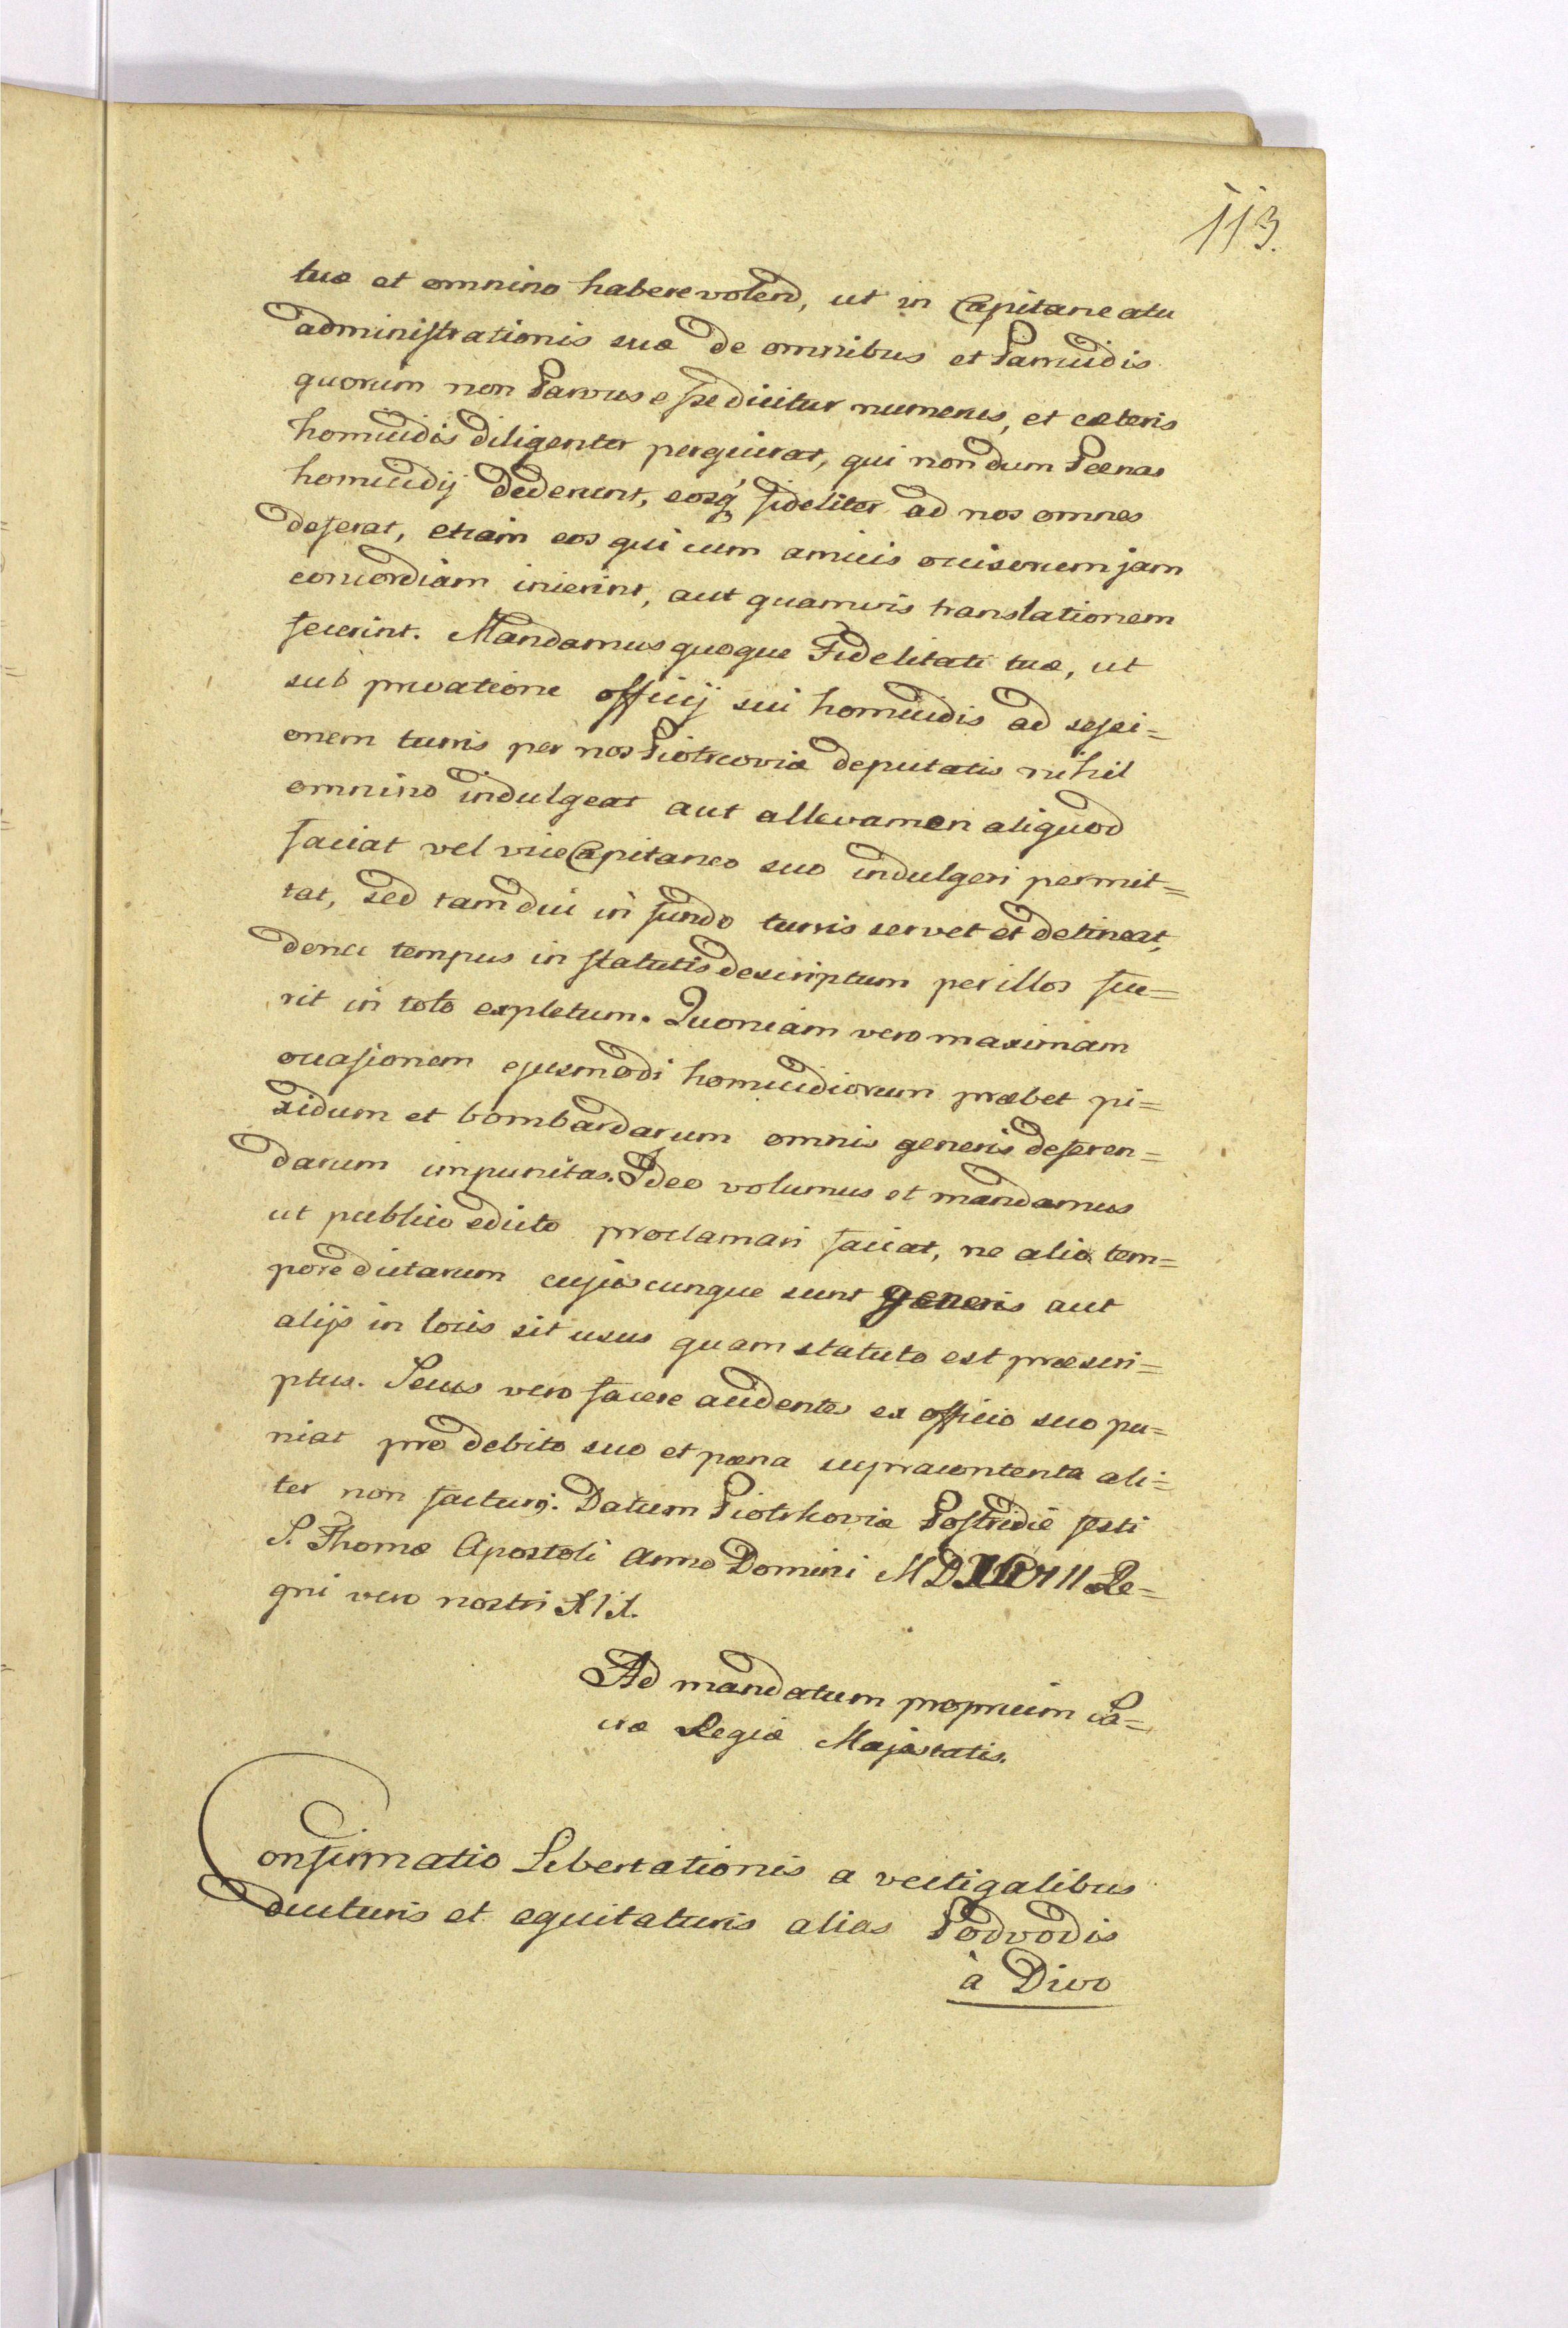 113.
tuæ et omnino habere volend, ut in Capitaneatu
administrationis suæ de omnibus et Parricidis
quorum non Parvus esse dicitur numerus, et cæteris
homicidis diligenter perquirat, qui nondum Pœnas
homicidij dederunt, eosq́ fideliter ad nos omnes
deferat, etiam eos qui cum amicis occisorum jam
concordiam inierint, aut quamvis translationem
fecerint. Mandamus quoque Fidelitati tuæ, ut
sub privatione officij sui homicidis ad sessi=
onem turris per nos Piotrcoviæ deputatis nihil
omnino indulgeat aut allevamen aliquod
faciat vel vice Capitaneo suo indulgeri permit=
tat, sed tamdiu in fundo turris servet et detineat,
donec tempus in statutis descriptum per illos fue=
rit in toto expletum. Quoniam vero maximam
occasionem ejusmodi homicidiorum præbet pi=
xidum et bombardarum omnis generis deferen=
darum impunitas. Ideo volumus et mandamus
ut publico edicto proclamari faciat, ne alio tem=
pore dictarum cujuscunque sunt generis aut
alijs in locis sit usus quam statuto est præscri=
ptus. Secus vero facere audentes ex officio suo pu=
niat pro debito suo et pœna supracontenta ali=
ter non facturus. Datum Piotrkoviæ Postridie festi
S. Thomæ Apostoli Anno Domini Re=
gni vero nostri XIX.
Ad mandatum proprium Sa=
cræ Regiæ Majestatis.
Confirmatio Libertationis a vectigalibus
ducturis et equitaturis alias Podvodis
à Divo